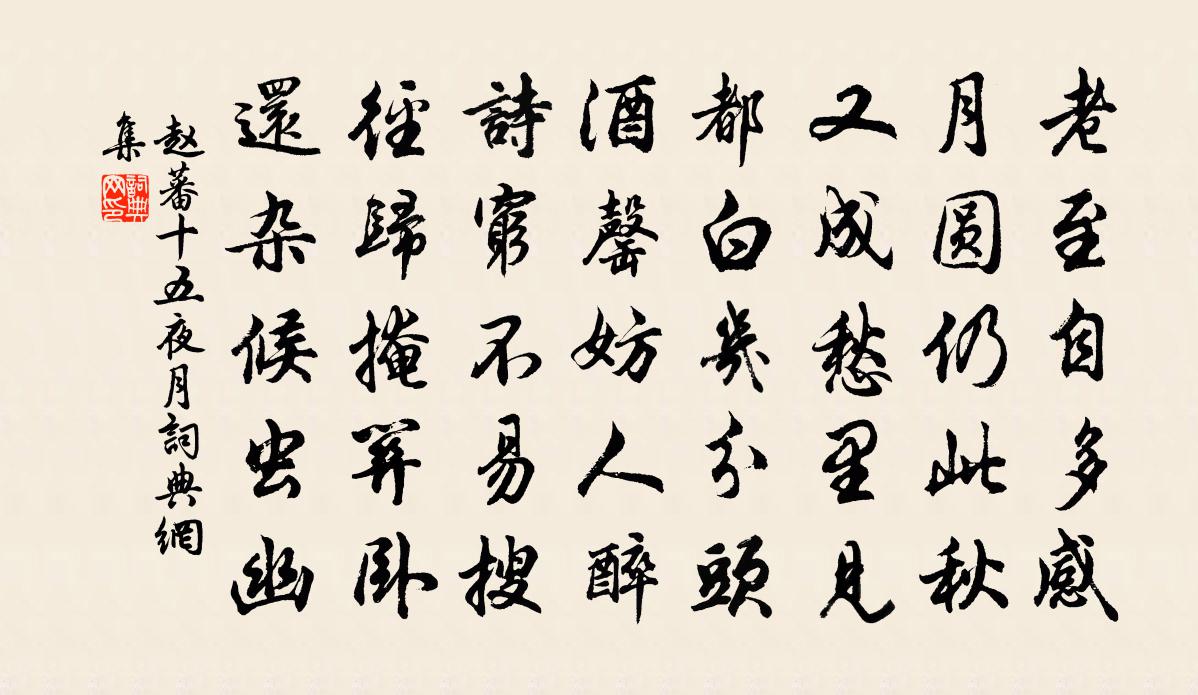 老至自多感
月圆仍此秋
又成愁里見
都白幾分頭
酒罄妨人醉
詩窮不易搜
徑歸掩卧
還杂候虫幽
赵蕃十五夜月詞典網
集
詞典
网印